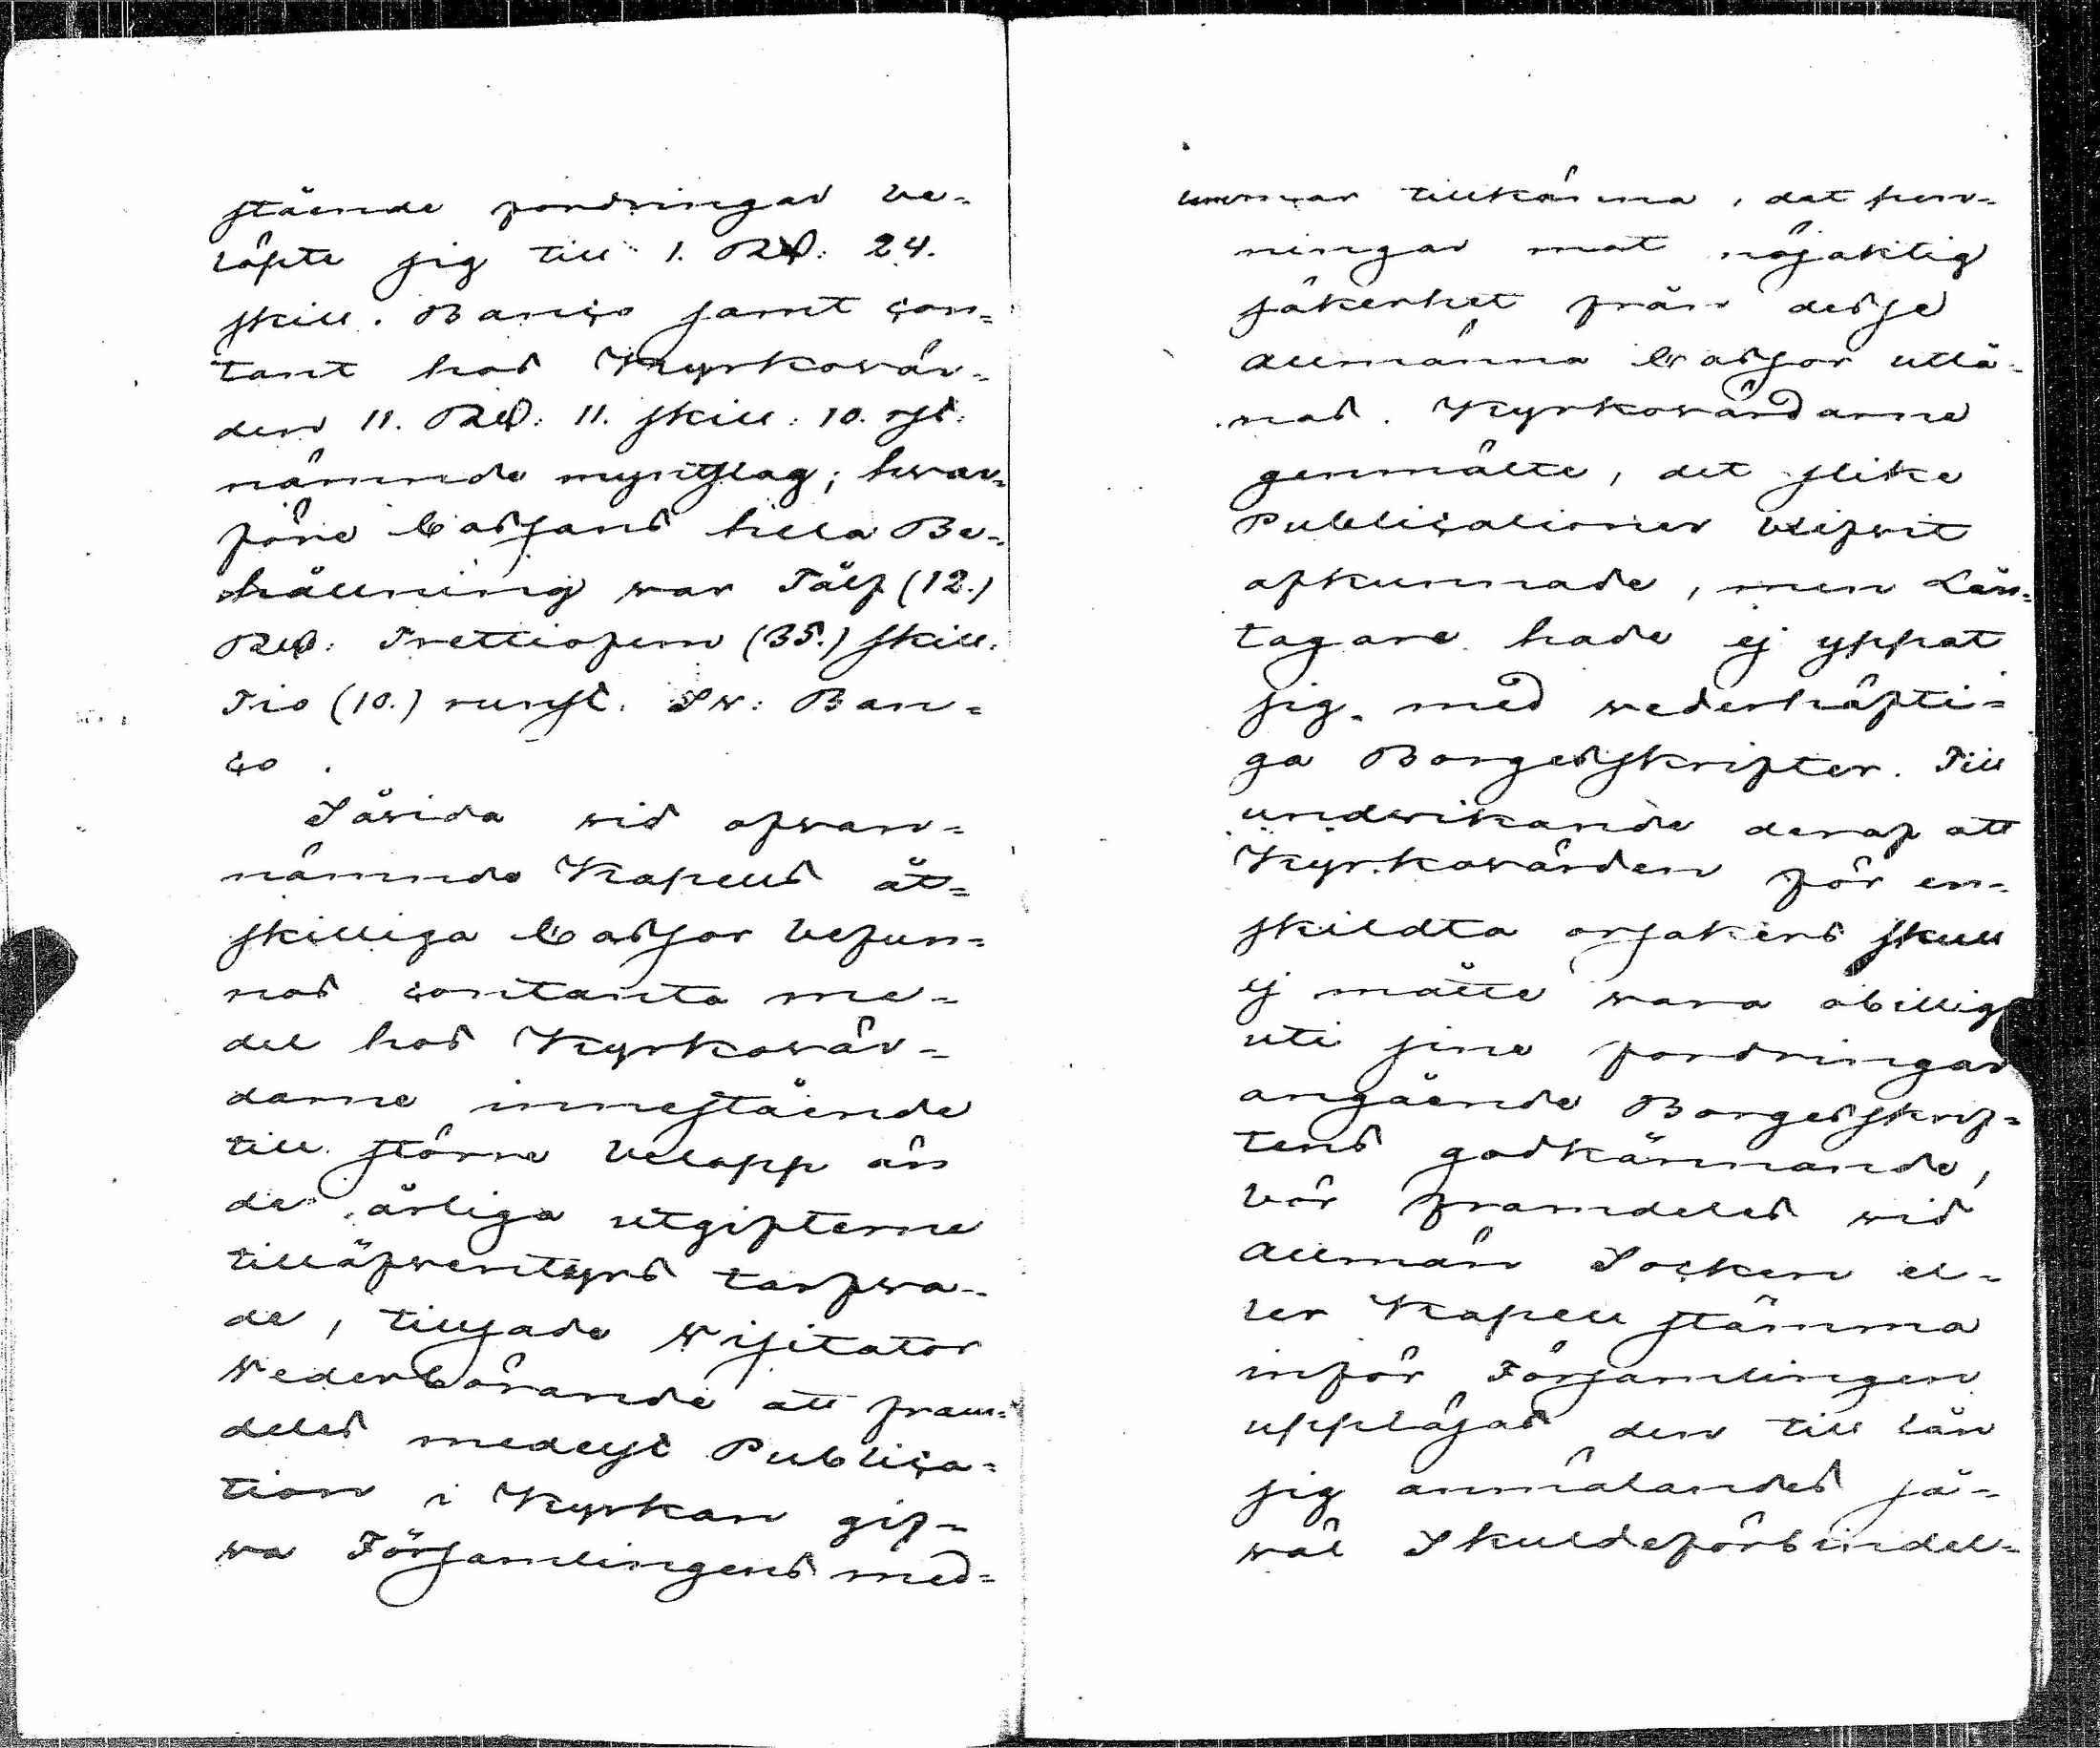 stående fordringar be=
löpte sig till 1. Rd: 24.
skill. Banco samt con=
tant hos Kyrkowär=
den 11. Rd: 11. skill: 10. rst:
nämnde myntslag; hwar=
före Cassans hela Be=
hållning war Tålf (12.)
Rd: Trettiofem (35.) skill:
Tio (10.) runst. Sw: Ban=
co.
Såwida wid ofwan=
nämnde Kapells åt=
skilliga Cassor befun=
nos contanta me=
del hos Kyrkowär=
darne innestående
till större belopp än
de årliga utgifterne
tilläfwentyrs tarfwa=
de, tillsade Wisitator
Wederbörande att fram=
deles medelst Publica=
tion i Kyrkan gif=
wa Församlingens med=
lemmar tillkänna, det pen=
ningar mot nöjaktig
säkerhet från desse
allmänna Cassor utlå=
nas. Kyrkowärdarne
genmälte, det slike
Publicationer blifwit
afkunnade, men Lån=
tagare hade ej yppat
sig med wederhäfti=
ga Borgesskrifter. Till
undwikande deraf att
Kyrkowärden för en=
skildta orsakers skull
ej måtte wara obillig
uti sine fordringar
angående Borgesskrif=
tens godkännande,
bör framdeles wid
allmän Socken el=
ler Kapell stämma
inför Församlingen
uppläsas den till lån
sig anmälandes så=
wäl Skuldeförbindel=